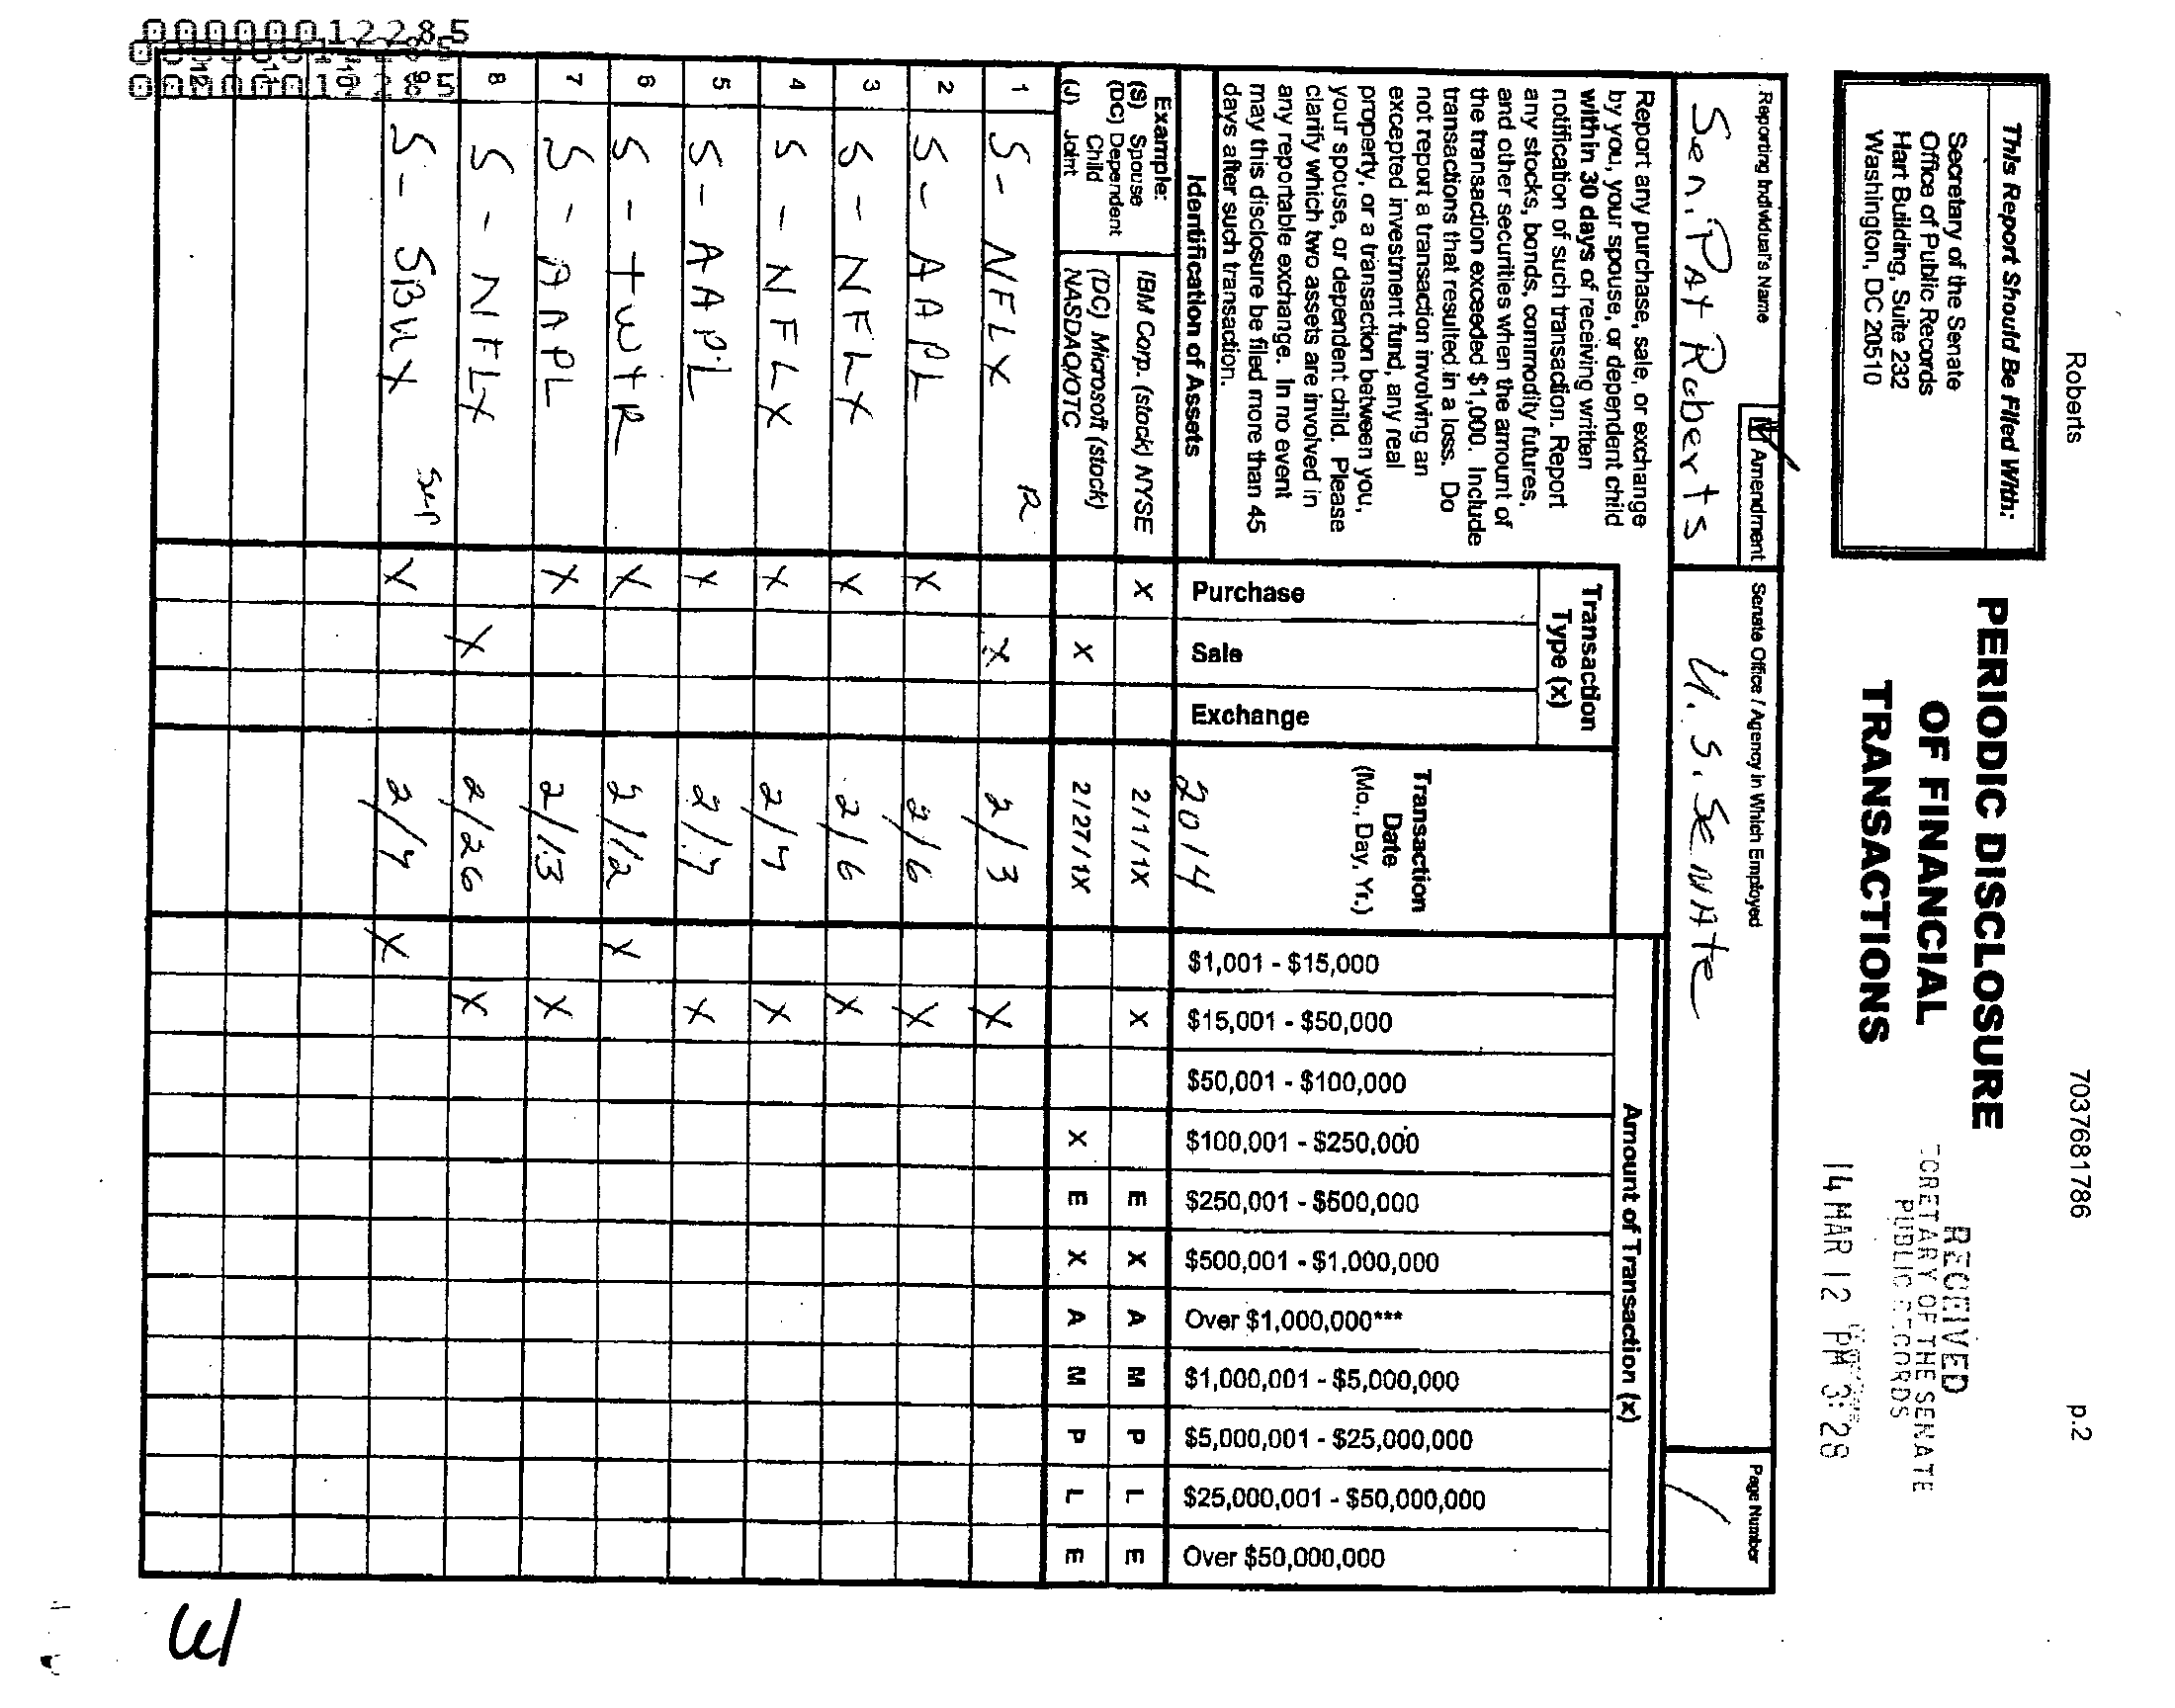 Roberts 7037681786 p.2
This Report Should Be Filed With:
Secretary of the Senate
Office of Public Records
Hart Building, Suite 232
Washington, DC 20510
PERIODIC DISCLOSURE
OF FINANCIAL
TRANSACTIONS
RECEIVED
CRETARY OF THE SENATE
PUBLIC RECORDS
14 MAR 12 PM 3:28
Reporting Individual's Name
Amendment
Senate Office / Agency in Which Employed
Page Number
Sen. Pat Roberts
U.S. SENATE
Report any purchase, sale, or exchange
by you, your spouse, or dependent child
within 30 days of receiving written
notification of such transaction. Report
any stocks, bonds, commodity futures,
and other securities when the amount of
the transaction exceeded $1,000. Include
transactions that resulted in a loss. Do
not report a transaction involving an
excepted investment fund, any real
property, or a transaction between you,
your spouse, or dependent child. Please
clarify which two assets are involved in
any reportable exchange. In no event
may this disclosure be filed more than 45
days after such transaction.
Identification of Assets
Transaction
Type (x)
Purchase
Sale
Exchange
Transaction
Date
(Mo., Day, Yr.)
2014
Amount of Transaction (x)
$1,001 - $15,000
$15,001 - $50,000
$50,001 - $100,000
$100,001 - $250,000
$250,001 - $500,000
$500,001 - $1,000,000
Over $1,000,000***
$1,000,001 - $5,000,000
$5,000,001 - $25,000,000
$25,000,001 - $50,000,000
Over $50,000,000
Example:
(S) Spouse
(DC) Dependent
Child
(J) Joint
IBM Corp. (stock) NYSE X 2/1/1X X E X A M P L E
(DC) Microsoft (stock)
NASDAQ/OTC X 2/27/1X X E X A M P L E
1 S - NFLX R X 2/3 X
2 S - AAPL X 2/6 X
3 S - NFLX X 2/6 X
4 S - NFLX X 2/7 X
5 S - AAPL X 2/7 X
6 S - TWTR X 2/12 X
7 S - AAPL X 2/13 X
8 S - NFLX X 2/26 X
9 S - SBUX X 2/7 X
10
11
12
000000012285